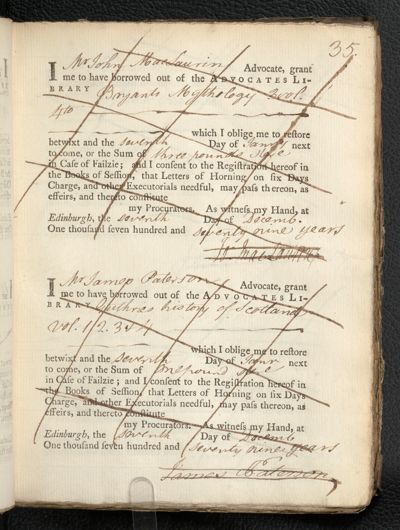 35.
I Mr John Maclaurin Advocate, grant
me to have borrowed out of the ADVOCATES LI-
BRARY Bryants Mythology 3 vol.
4to
which I oblige me to restore
betwixt and the seventh Day of Janry next
to come, or the Sum of three pounds Ster
in Case of Failzie; and I consent to the Registration hereof in
the Books of Session, that Letters of Horning on six Days
Charge, and other Executorials needful, may pass thereon, as
effeirs, and thereto constitute
my Procurators. As witness my Hand, at
Edinburgh, the seventh Day of Decemb.
One thousand seven hundred and seventy nine years
I Mr James Paterson Advocate, grant
me to have borrowed out of the ADVOCATES LI-
BRARY Guthries history of Scotland
Vol. 1. 2. 3 & 4
which I oblige me to restore
betwixt and the seventh Day of Janr next
to come, or the Sum of one pound Ster
in Case of Failzie; and I consent to the Registration hereof in
the Books of Session, that Letters of Horning on six Days
Charge, and other Executorials needful, may pass thereon, as
effeirs, and thereto constitute
my Procurators. As witness my Hand, at
Edinburgh, the seventh Day of Decemb
One thousand seven hundred and seventy nine years
James Paterson